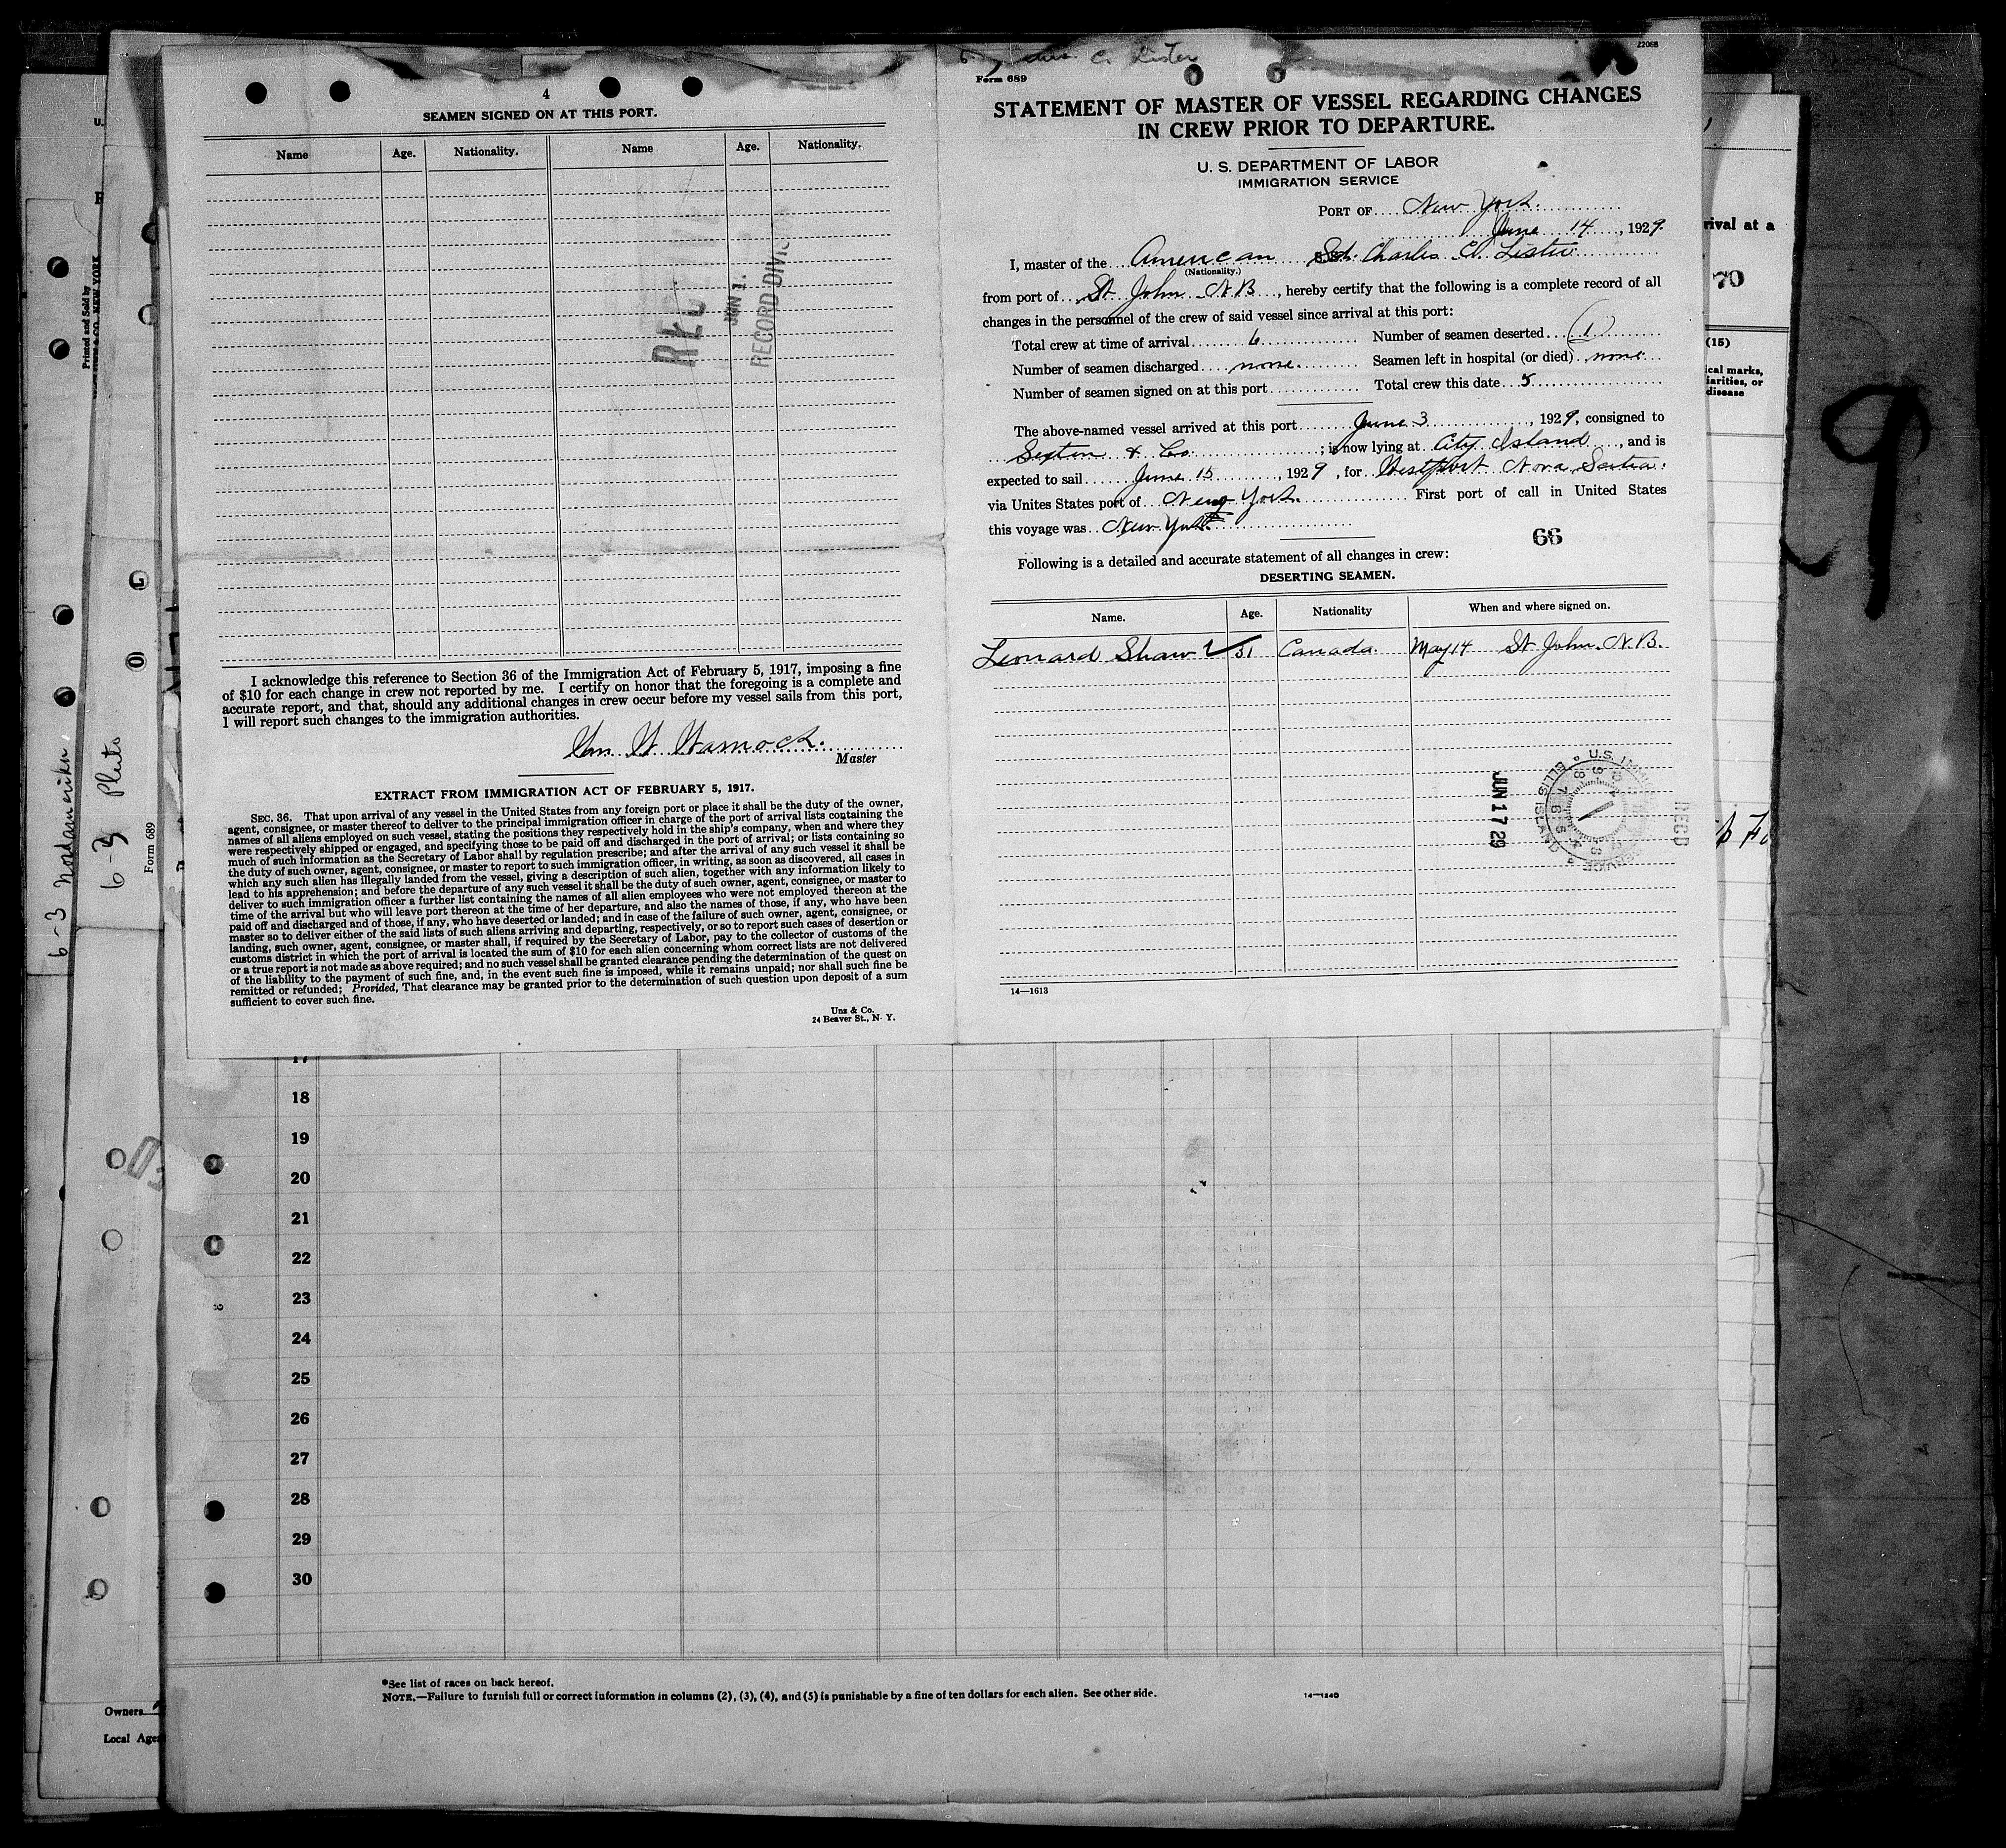 4
SEAMEN SIGNED ON AT THIS PORT.
Name Age. Nationality. Name Age. Nationality.
RECORD DIVISION
I acknowledge this reference to Section 36 of the Immigration Act of February 5, 1917, imposing a fine
of $10 for each change in crew not reported by me. I certify on honor that the foregoing is a complete and
accurate report, and that, should any additional changes in crew occur before my vessel sails from this port,
I will report such changes to the immigration authorities.
Master
EXTRACT FROM IMMIGRATION ACT OF FEBRUARY 5, 1917.
SEC. 36. That upon arrival of any vessel in the United States from any foreign port or place it shall be the duty of the owner,
agent, consignee, or master thereof to deliver to the principal immigration officer in charge of the port of arrival lists containing the
names of all aliens employed on such vessel, stating the positions they respectively hold in the ship's company, when and where they
were respectively shipped or engaged, and specifying those to be paid off and discharged in the port of arrival; or lists containing so
much of such information as the Secretary of Labor shall by regulation prescribe; and after the arrival of any such vessel it shall be
the duty of such owner, agent, consignee, or master to report to such immigration officer, in writing, as soon as discovered, all cases in
which any such alien has illegally landed from the vessel, giving a description of such alien, together with any information likely to
lead to his apprehension; and before the departure of any such vessel it shall be the duty of such owner, agent, consignee, or master to
deliver to such immigration officer a further list containing the names of all alien employees who were not employed thereon at the
time of the arrival but who will leave port thereon at the time of her departure, and also the names of those, if any, who have been
paid off and discharged and of those, if any, who have deserted or landed; and in case of the failure of such owner, agent, consignee, or
master so to deliver either of the said lists of such aliens arriving and departing, respectively, or so to report such cases of desertion or
landing, such owner, agent, consignee, or master shall, if required by the Secretary of Labor, pay to the collector of customs of the
customs district in which the port of arrival is located the sum of $10 for each alien concerning whom correct lists are not delivered
or a true report is not made as above required; and no such vessel shall be granted clearance pending the determination of the quest on
of the liability to the payment of such fine, and, in the event such fine is imposed, while it remains unpaid; nor shall such fine be
remitted or refunded; Provided, That clearance may be granted prior to the determination of such question upon deposit of a sum
sufficient to cover such fine.
Unz & Co.
24 Beaver St., N. Y.
C. Lister
22088
Form 689
STATEMENT OF MASTER OF VESSEL REGARDING CHANGES
IN CREW PRIOR TO DEPARTURE.
U. S. DEPARTMENT OF LABOR
IMMIGRATION SERVICE
PORT OF New York.
June 14, 1929.
I, master of the American Sch. Charles C. Lister
(Nationality.)
from port of St. John N B, hereby certify that the following is a complete record of all
changes in the personnel of the crew of said vessel since arrival at this port:
Total crew at time of arrival 6 Number of seamen deserted (1)
Number of seamen discharged none. Seamen left in hospital (or died) none
Number of seamen signed on at this port Total crew this date 5
The above-named vessel arrived at this port June 3, 1929, consigned to
Sexton & Co. ; is now lying at City Island, and is
expected to sail June 15, 1929, for Westport Nova Scotia.
via Unites States port of New York. First port of call in United States
this voyage was New York.
66
Following is a detailed and accurate statement of all changes in crew:
DESERTING SEAMEN.
Name. Age. Nationality When and where signed on.
Leonard Shaw 51 Canada. May 14 St John. N. B.
JUN 17 29
REC'D
14—1613
18
19
20
21
22
23
24
25
26
27
28
29
30
*See list of races on back hereof.
NOTE.—Failure to furnish full or correct information in columns (2), (3), (4), and (5) is punishable by a fine of ten dollars for each alien. See other side.
14—1240
6-3 Nordamerika
6-3 Pluto
Form 689
Printed and Sold by
Owners
Local Age
rival at a
70
(15)
ical marks,
iarities, or
disease
9